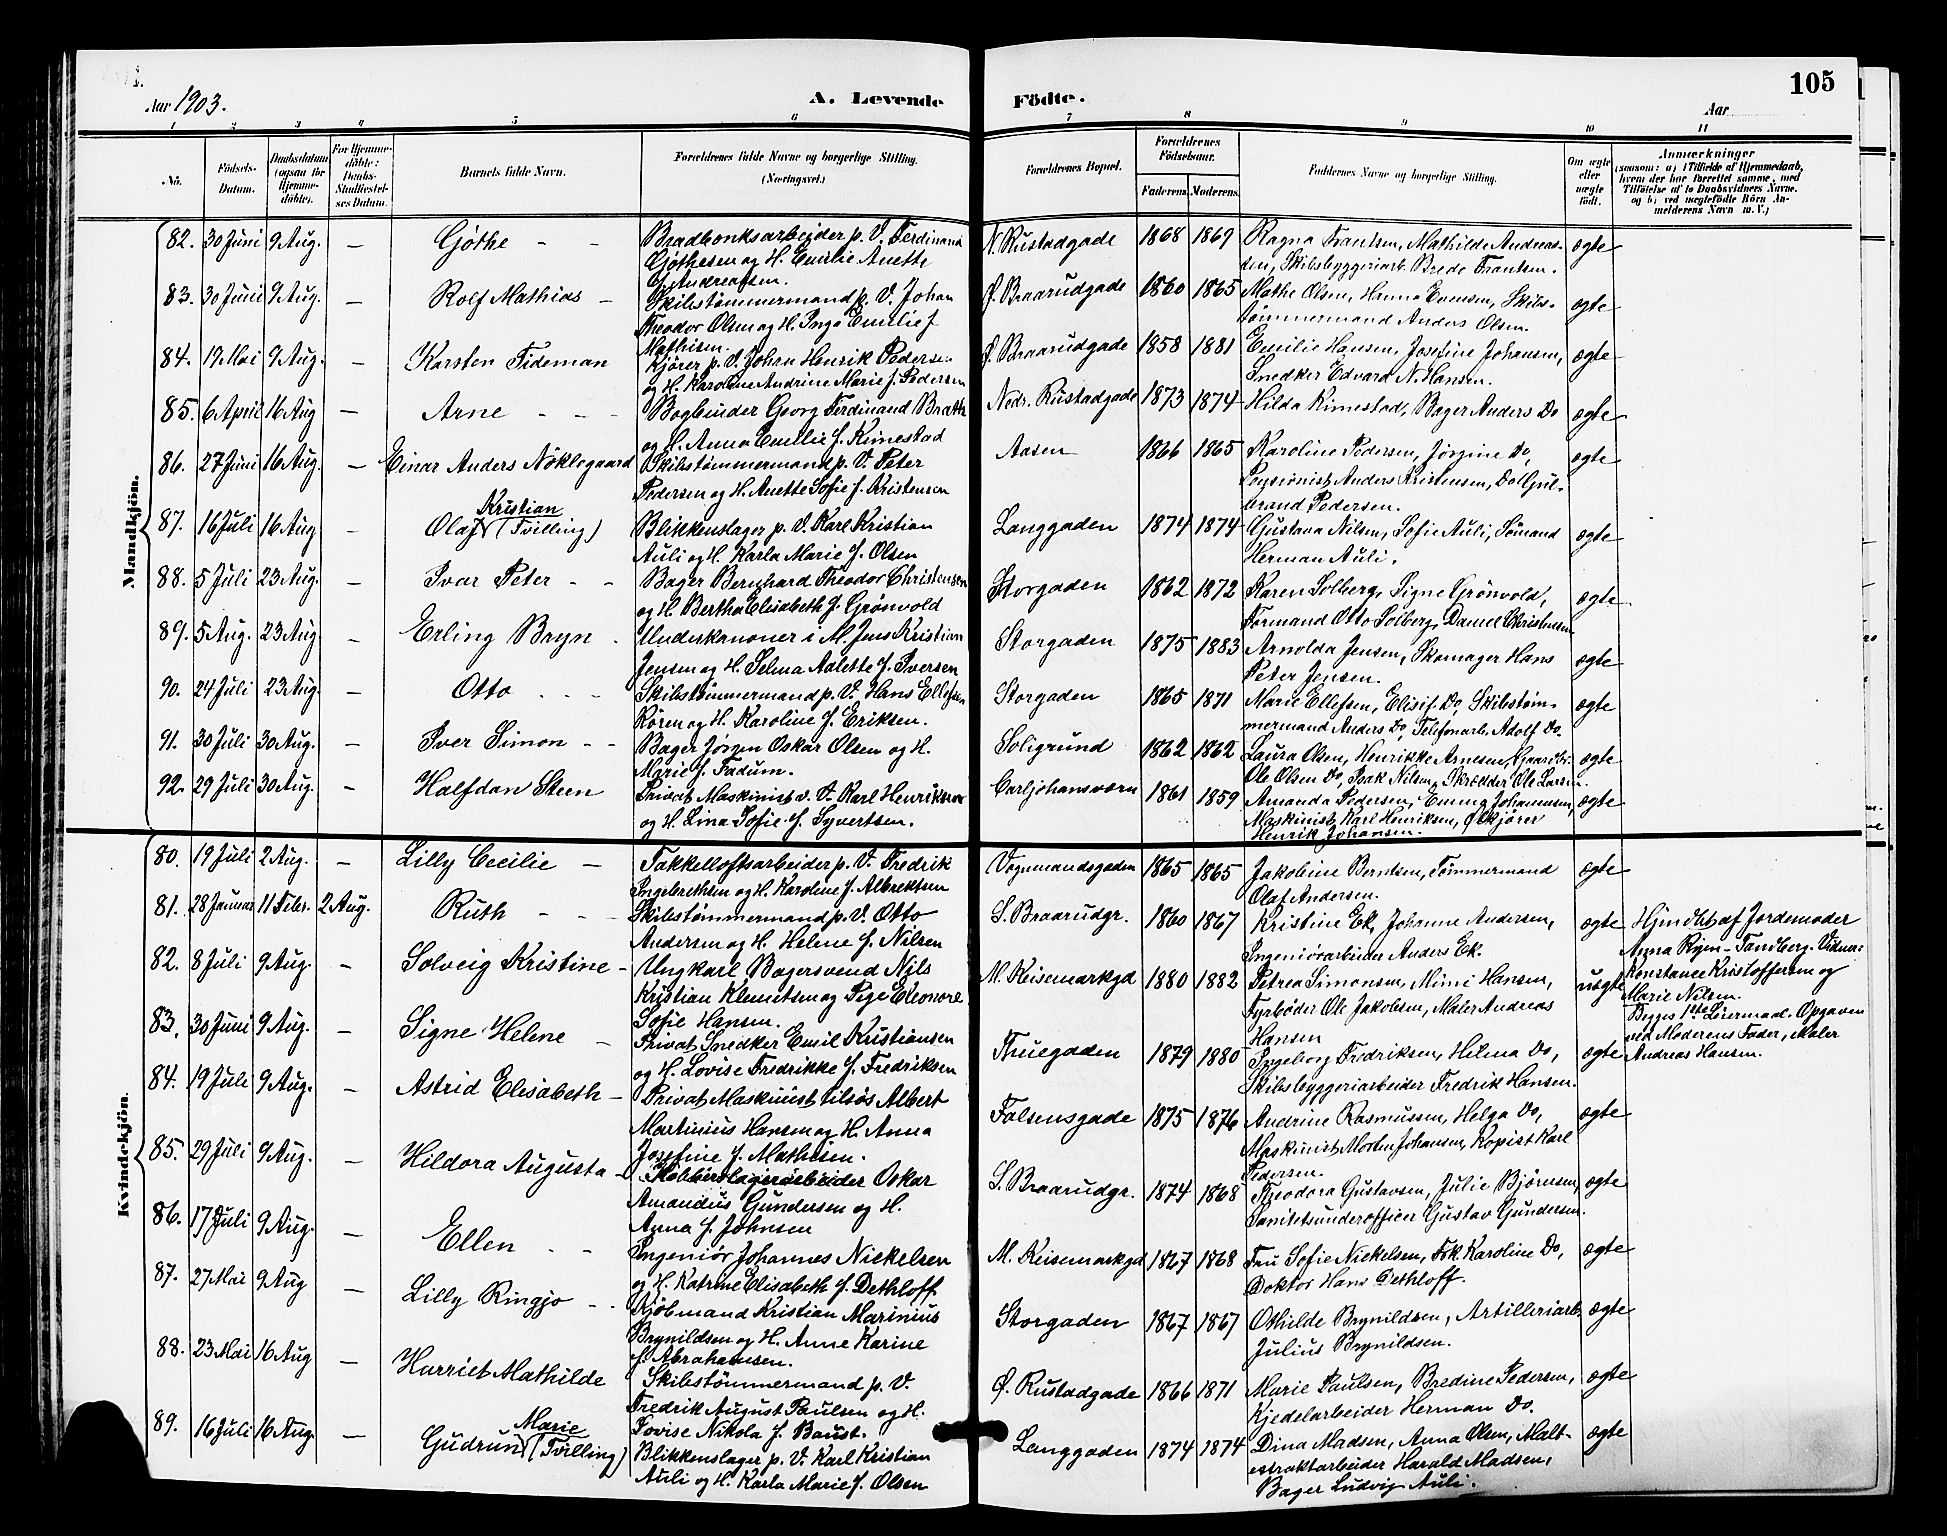 Aar 1903.
A. Levende
Födte.
105
Aar
1 2 3 4 5 6 7 8 9 10 11
No. Födsels-Datum. Daabsdatum (ogsaa för Hjemme-döbte). For Hjemme-döbte: Daabs-Stadfæstel-ses Datum. Barnets fulde Navn. Forældrenes fulde Navne og borgerlige Stilling. (Næringsvei.) Forældrenes Bopæl. Forældrenes Födselsaar. Faderens. Moderens. Faddernes Navne og borgerlige Stilling. Om ægte eller uægte födt. Anmærkninger (saasom: a) i Tilfælde af Hjemmedaab, hvem der har forrettet samme, med Tilföielse af to Daabsvidners Navne, og b) ved uægtefödte Börn An-melderens Navn m. V.)
Mandkjön.
82. 30 Juni 9 Aug. — Gjøthe - - Bradbænksarbeider p. V. Ferdinand N. Rustadgade 1868 1869 Ragna Frantsen, Mathilde Andreas- ægte
Gjøthesen og H. Emilie Anette sen, Skibsbyggeriarb. Bredo Frantsen.
f. Andreassen.
83. 30 Juni 9 Aug. — Rolf Mathias - Skibstømmermand p. V. Johan Ø. Braarudgade 1860 1865 Mathe Olsen, Hanna Evensen, Skibs- ægte
Theodor Olsen og H. Inga Emilie f. tømmermand Anders Olsen.
Mathisen.
84. 19 Mai 9 Aug. — Karsten Tideman Kjører p. V. Johan Henrik Pedersen Ø. Braarudgade 1858 1881 Emilie Hansen, Josefine Johansen, ægte
og H. Karoline Andrine Marie f. Pedersen Snedker Edvard N. Hansen.
85. 6 April 16 Aug — Arne - - - Bogbinder Georg Ferdinand Brath Nedr. Rustadgade 1873 1874 Hilda Rimestad, Bager Anders Do ægte
og H. Anna Emilie f. Rimestad
86. 27 Juni 16 Aug. — Einar Anders Nøklegaard Skibstømmermand p. V. Peter Aasen 1866 1865 Karoline Pedersen, Jørgine Do, ægte
Pedersen og H. Anette Sofie f. Kristensen Pensionist Anders Kristensen, Do Gul-
brand Pedersen.
87. 16 Juli 16 Aug — Olaf Kristian (Tvilling) Blikkenslager p. V. Karl Kristian Langgaden 1874 1874 Gustava Nilsen, Sofie Auli, Sømand ægte
Auli og H. Karla Marie f. Olsen Herman Auli.
88. 5 Juli 23 Aug. — Ivar Peter - - Bager Bernhard Theodor Christensen Storgaden 1862 1872 Karen Solberg, Signe Grønvold, ægte
og H. Bertha Elisabeth f. Grønvold Formand Otto Solberg, Daniel Christensen
89. 5 Aug. 23 Aug. — Erling Bryn - Underkanoner i M. Jens Kristian Storgaden 1875 1883 Arnolda Jensen, Skomager Hans ægte
Jensen og H. Selma Aalette f. Iversen Peter Jensen.
90. 24 Juli 23 Aug. — Otto - - - Skibstømmermand p. V. Hans Ellefsen Storgaden 1865 1871 Marie Ellefsen, Elisif Do, Skibstøm- ægte
Røren og H. Karoline f. Eriksen. mermand Anders Do, Telefonarb. Adolf Do.
91. 30 Juli 30 Aug. — Iver Simon - - Bager Jørgen Oskar Olsen og H. Soligrund 1862 1862 Laura Olsen, Henrikke Arnesen, Gaardbr. ægte
Marie f. Fadum. Ole Olsen Do, Isak Nilsen, Skrædder Ole Larsen.
92. 29 Juli 30 Aug. — Halfdan Steen Privat Maskinist v. V. Karl Henriksen Carljohansværn 1861 1859 Amanda Pedersen, Emma Johannsen, ægte
og H. Lina Sofie f. Syvertsen. Maskinist Karl Henriksen, Ølkjører
Henrik Johansen.
Kvindekjön.
80. 19 Juli 2 Aug. — Lilly Cecilie - Takkelloftsarbeider p. V. Fredrik Vognmandsgaden 1865 1865 Jakobine Berntsen, Tømmermand ægte
Ingebrethsen og H. Karoline f. Albrektsen Olaf Andersen.
81. 28 Januar 11 Febr. 2 Aug. Ruth - - - Skibstømmermand p. V. Otto S. Braarudgr. 1860 1867 Kristine Ek, Johanne Andersen, ægte Hjmdbt af Jordemoder
Andersen og H. Helene f. Nilsen Ingeniørarbeider Anders Ek. Anna Ryen-Tandberg. Vidner:
82. 8 Juli 9 Aug. — Solveig Kristine - Ungkarl Bagersvend Nils M. Keisemarkgd 1880 1882 Petrea Simonsen, Mimi Hansen, uægte Konstance Kristoffersen og
Kristian Klemetsen og Pige Eleonore Fyrbøder Ole Jakobsen, Maler Andreas Marie Nilsen.
Sofie Hansen. Hansen Begges 1ste Leiermaal. Opgaven
83. 30 Juni 9 Aug. — Signe Helene - Privat Snedker Emil Kristiansen Thuegaden 1879 1880 Ingeborg Fredriksen, Helena Do, ægte ved Moderens Fader, Maler
og H. Lovise Fredrikke f. Fredriksen Skibsbyggeriarbeider Fredrik Hansen. Andreas Hansen.
84. 19 Juli 9 Aug. — Astrid Elisabeth - Privat Maskinist tilsøs Albert Falsensgade 1875 1876 Andrine Rasmussen, Helga Do, ægte
Martinius Hansen og H. Anna Maskinist Morten Johansen, Kopist Karl
Josefine f. Mathisen. Pedersen.
85. 29 Juli 9 Aug. — Hildora Augusta - Kobberslagerarbeider Oskar S. Braarudgr. 1874 1868 Theodora Gustavsen, Julie Bjørnsen, ægte
Amandus Gundersen og H. Sanitetsunderofficer Gustav Gundersen.
Anna f. Johnsen
86. 17 Juli 9 Aug. — Ellen - - Ingeniør Johannes Nickelsen M. Keisemarkgd 1867 1868 Fru Sofie Nickelsen, Frk. Karoline Do, ægte
og H. Katrine Elisabeth f. Dethloff Doktor Hans Dethloff.
87. 27 Mai 9 Aug — Lilly Ringjo - - Kjøbmand Kristian Marinius Storgaden 1867 1867 Othilde Brynildsen, Artilleriarb. ægte
Brynildsen og H. Anne Karine Julius Brynildsen.
f. Abrahamsen.
88. 23 Mai 16 Aug — Harriet Mathilde Skibstømmermand p. V. Ø. Rustadgade 1866 1871 Marie Paulsen, Bredine Pedersen, ægte
Fredrik August Paulsen og H. Kjedelarbeider Herman Do.
Lovise Nikola f. Baust.
89. 16 Juli 16 Aug. — Gudrun Marie (Tvilling) Blikkenslager p. V. Karl Kristian Langgaden 1874 1874 Dina Madsen, Anna Olsen, Malt- ægte
Auli og H. Karla Marie f. Olsen estraktarbeider Harald Madsen,
Bager Ludvig Auli.